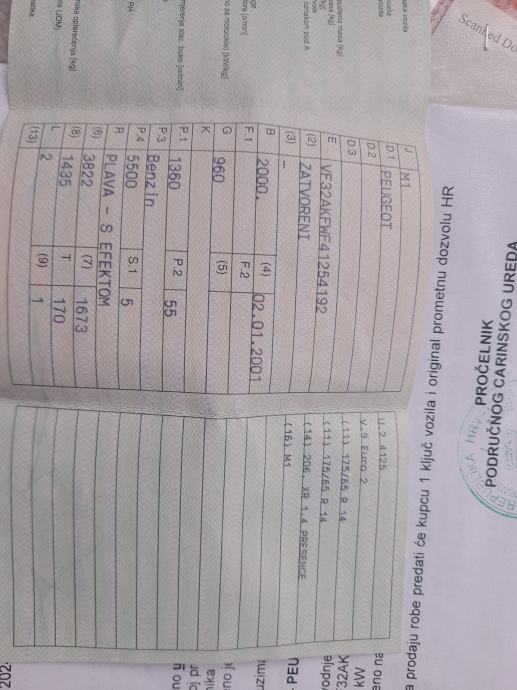 J M1
D.1 PEUGEOT
D.2
D.3
E VF32AKFWF41254192
(2) ZATVORENI
(3) -
B 2000. (4) 02.01.2001
F.1 F.2
G 960 (5)
K
P.1 1360 P.2 55
P.3 Benzin
P.4 5500 S.1 5
R PLAVA - S EFEKTOM
(6) 3822 (7) 1673
(8) 1435 T 170
L 2 (9) 1
(13)
U.2 4125
V.9 Euro 2
(11) 175/65 R 14
(11) 175/65 R 14
(14) 206, XR 1.4 PRESENCE
(16) M1
masa [kg]
oznakom pod A
(o/min)
za motocikle) [kW/kg]
mjerenja stac. buke [o/min]
RH
opterećenja [kg]
Scanned Do
PROČELNIK
PODRUČNOG CARINSKOG UREDA
a prodaju robe predati će kupcu 1 ključ vozila i original prometnu dozvolu HR
ano na
kW
32AK
vodnje
PEU
uzima
202